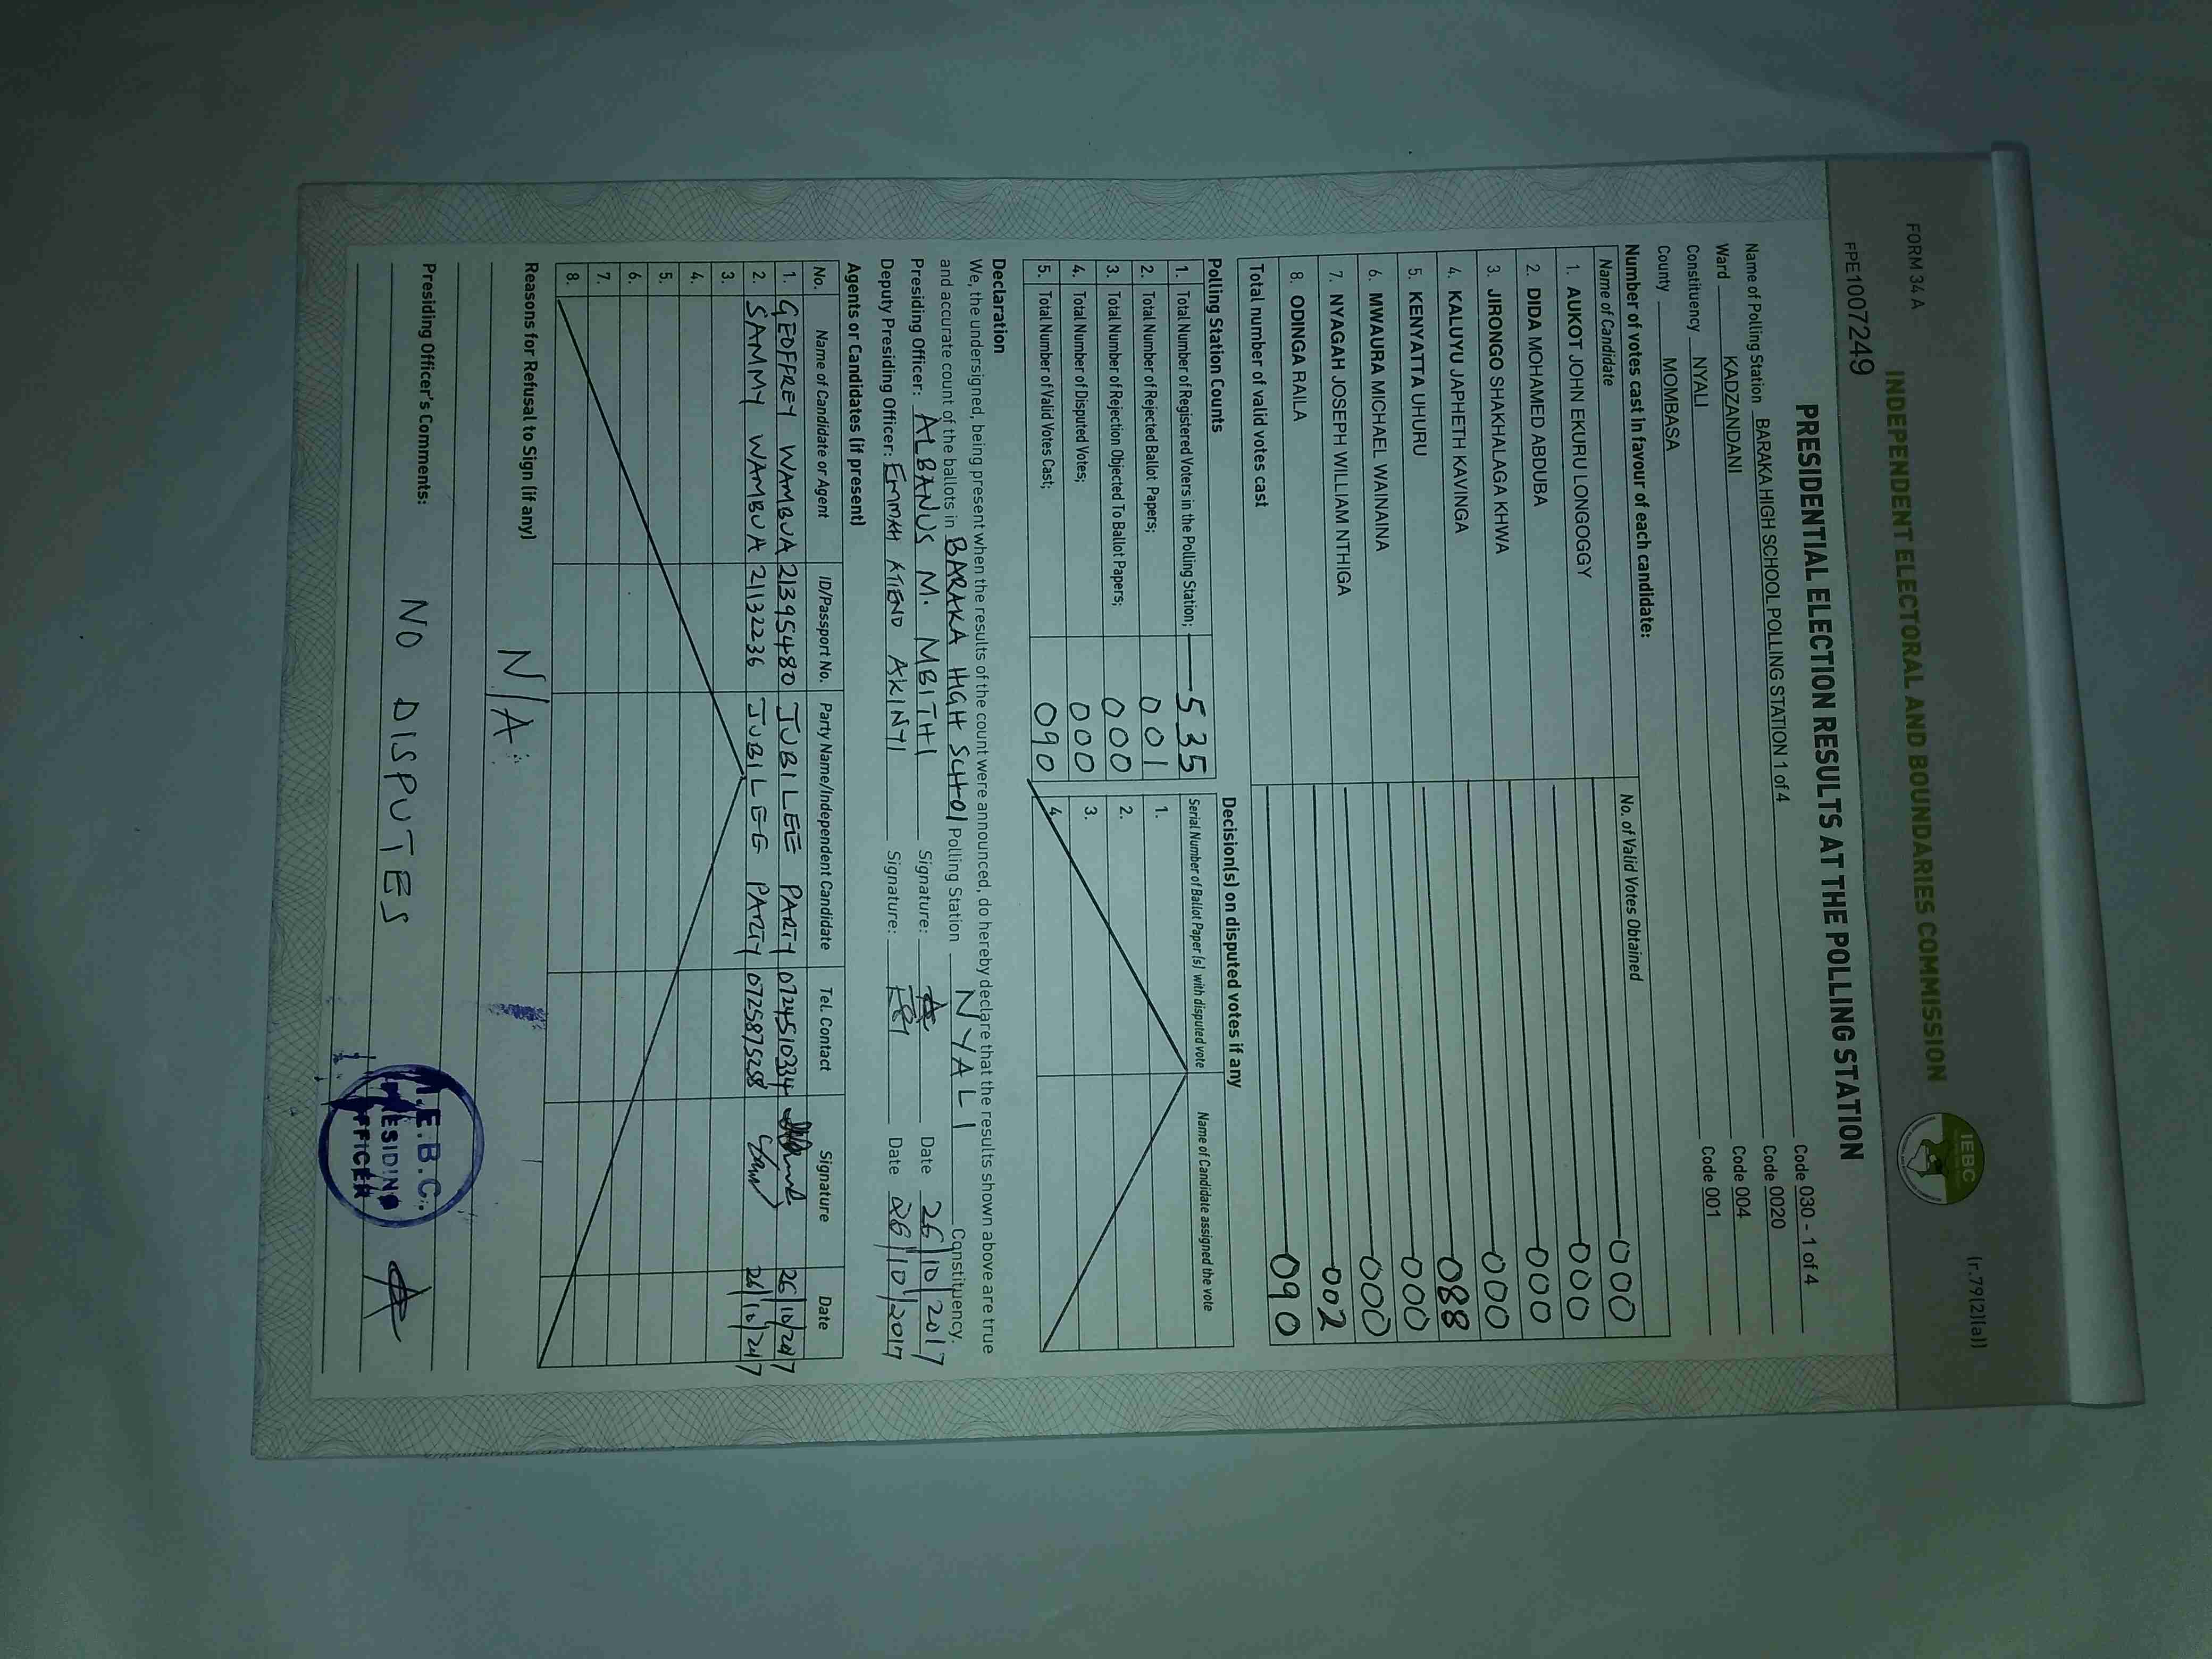 FORM 34 A
(r.79(2)(a))
INDEPENDENT ELECTORAL AND BOUNDARIES COMMISSION
IEBC
FPE1007249
PRESIDENTIAL ELECTION RESULTS AT THE POLLING STATION
Name of Polling Station BARAKA HIGH SCHOOL POLLING STATION 1 of 4 Code 030 - 1 of 4
Ward KADZANDANI Code 0020
Constituency NYALI Code 004
County MOMBASA Code 001
Number of votes cast in favour of each candidate:
Name of Candidate No. of Valid Votes Obtained
1. AUKOT JOHN EKURU LONGOGGY 000
2. DIDA MOHAMED ABDUBA 000
3. JIRONGO SHAKHALAGA KHWA 000
4. KALUYU JAPHETH KAVINGA 000
5. KENYATTA UHURU 088
6. MWAURA MICHAEL WAINAINA 000
7. NYAGAH JOSEPH WILLIAM NTHIGA 000
8. ODINGA RAILA 002
Total number of valid votes cast 090
Polling Station Counts
1. Total Number of Registered Voters in the Polling Station; 535
2. Total Number of Rejected Ballot Papers; 001
3. Total Number of Rejection Objected To Ballot Papers; 000
4. Total Number of Disputed Votes; 000
5. Total Number of Valid Votes Cast; 090
Decision(s) on disputed votes if any
Serial Number of Ballot Paper (s) with disputed vote Name of Candidate assigned the vote
1.
2.
3.
4.
Declaration
We, the undersigned, being present when the results of the count were announced, do hereby declare that the results shown above are true
and accurate count of the ballots in BARAKA HIGH SCHOl Polling Station NYALI Constituency.
Presiding Officer: ALBANUS M. MBITHI Signature: Date 26/10/2017
Deputy Presiding Officer: EMMAH ATIENO AKINYI Signature: Date 26/10/2017
Agents or Candidates (if present)
No. Name of Candidate or Agent ID/Passport No. Party Name/Independent Candidate Tel. Contact Signature Date
1. GEOFFREY WAMBUA 21395480 JUBILEE PARTY 0724510334 26/10/2017
2. SAMMY WAMBUA 21132236 JUBILEE PARTY 0725875258 26/10/2017
3.
4.
5.
6.
7.
8.
Reasons for Refusal to Sign (if any)
N/A
Presiding Officer's Comments:
NO DISPUTES
I.E.B.C.
PRESIDING
OFFICER